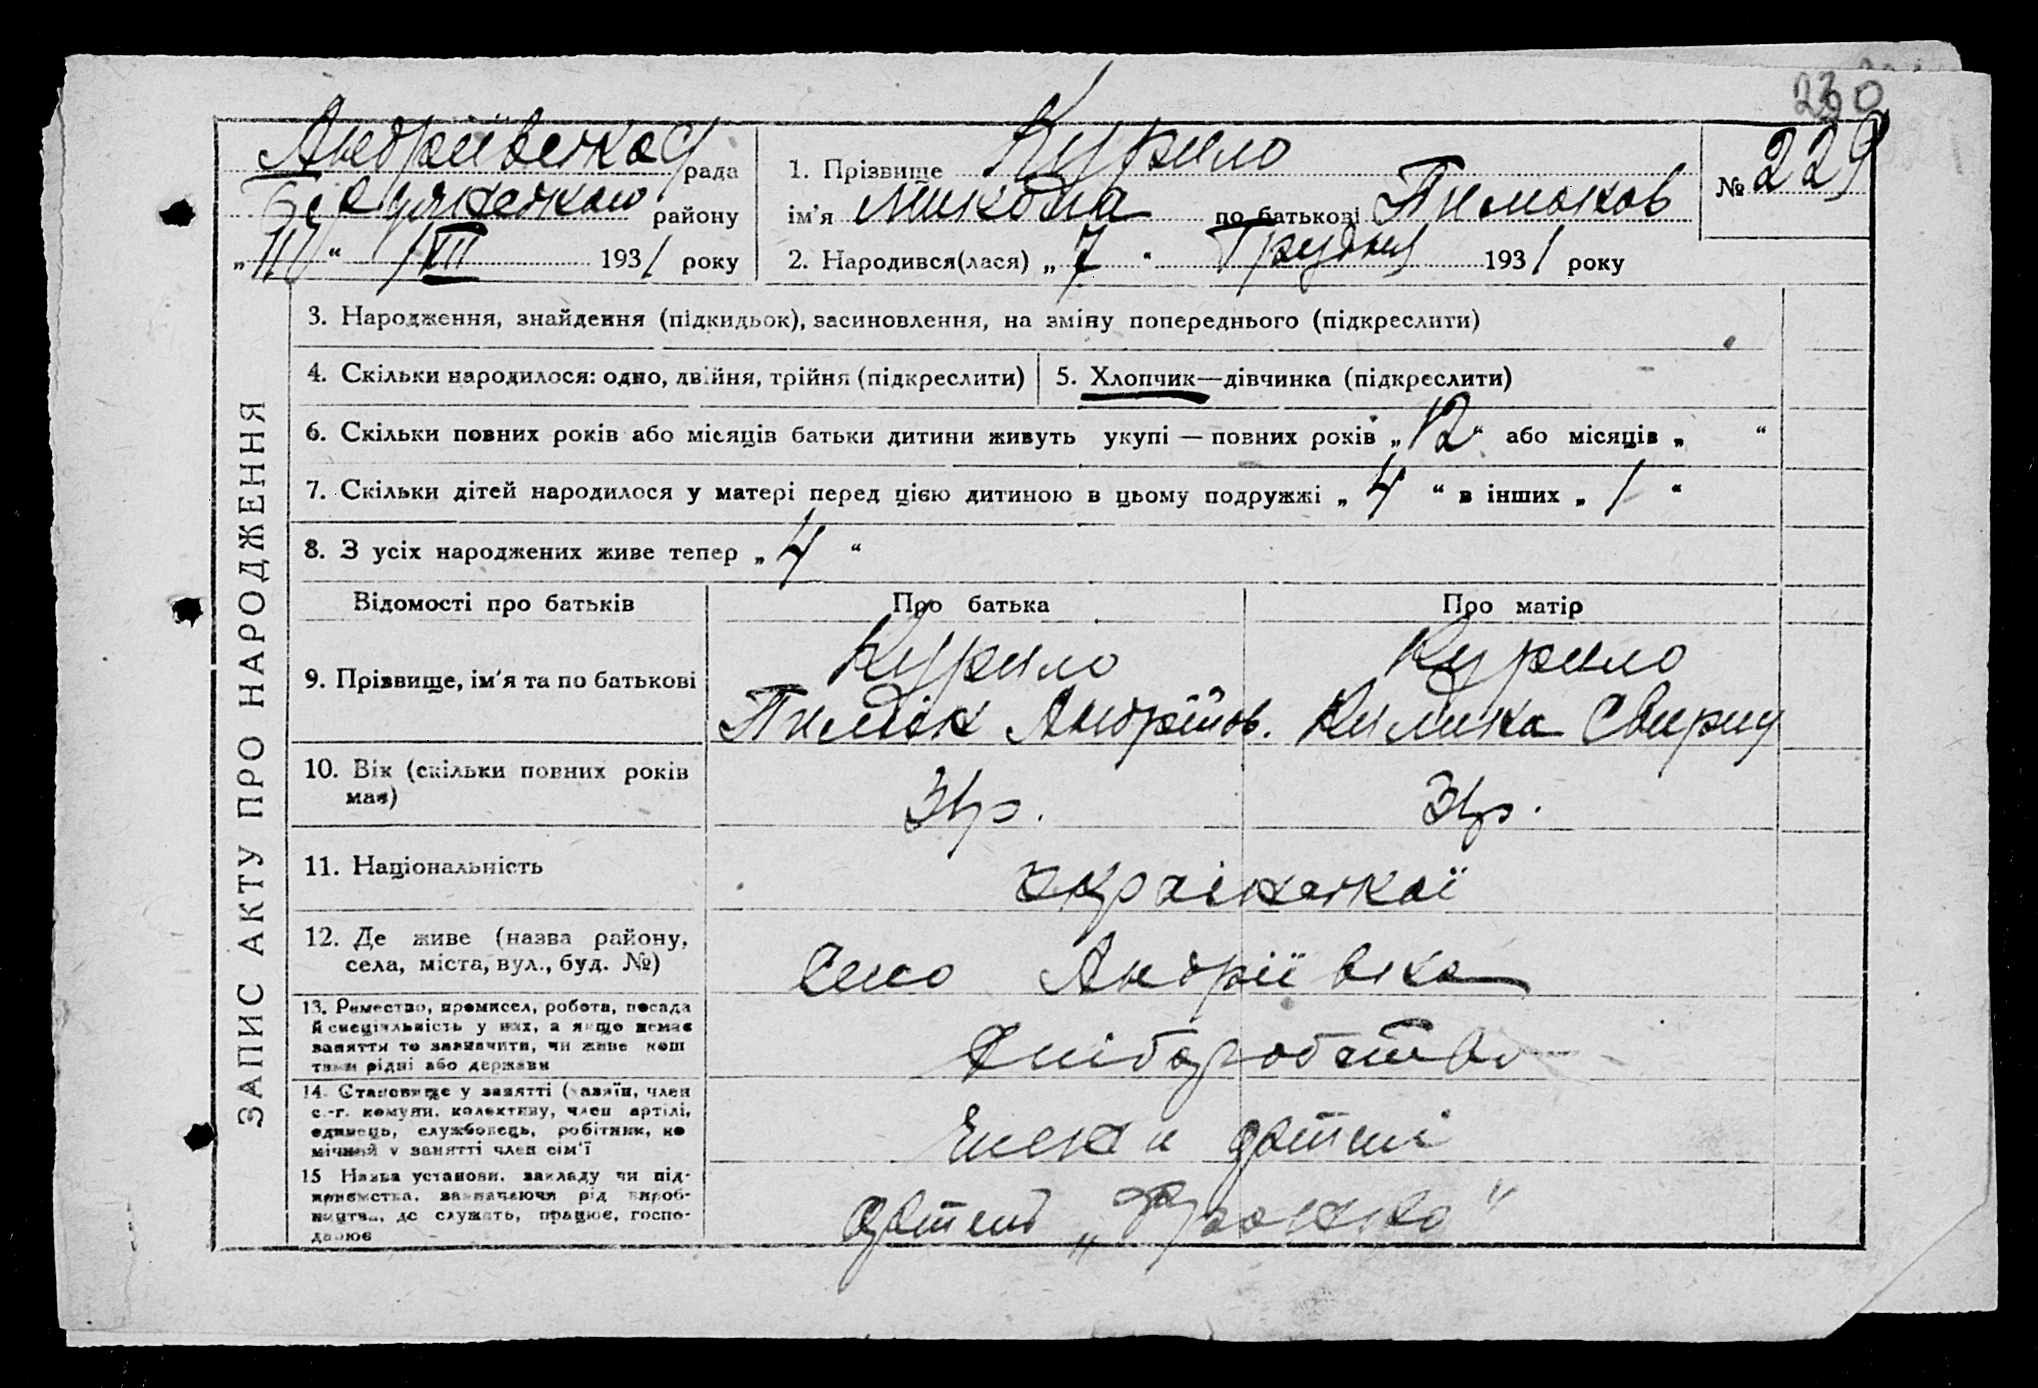 230
Андріївська с/рада
Бердянського району
1. Прізвище Курило
№ 229
ім'я Микола по батькові Тимохов
„11“ XII 1931 року
2. Народився(лася) „7“ Грудня 1931 року
ЗАПИС АКТУ ПРО НАРОДЖЕННЯ
3. Народження, знайдення (підкидьок), засиновлення, на зміну попереднього (підкреслити)
4. Скільки народилося: одно, двійня, трійня (підкреслити)
5. Хлопчик—дівчинка (підкреслити)
6. Скільки повних років або місяців батьки дитини живуть укупі — повних років „12“ або місяців „ “
7. Скільки дітей народилося у матері перед цією дитиною в цьому подружжі „4“ в інших „/“
8. З усіх народжених живе тепер „4“
Відомості про батьків
Про батька
Про матір
9. Прізвище, ім'я та по батькові
Курило
Андріїов.
Курило
Свирид
10. Вік (скільки повних років має)
31р.
31р.
11. Національність
української
12. Де живе (назва району,
села, міста, вул., буд. №)
Село Андріївка
13. Ремество, промисел, робота, посада
й спеціяльність у них, а якщо немає
заняття то зазначити, чи живе кош
тами рідні або держави
Хліборобство
14. Становище у занятті (хазяїн, член
с.-г. комуни, колективу, член артілі,
одинець, службовець, робітник, по
мічний у занятті член сім'ї
Члени артілі
15 Назва установи, закладу чи під-
приємства, зазначаючи рід вироб-
ництва, де служить, працює, госпо-
дарює
артель